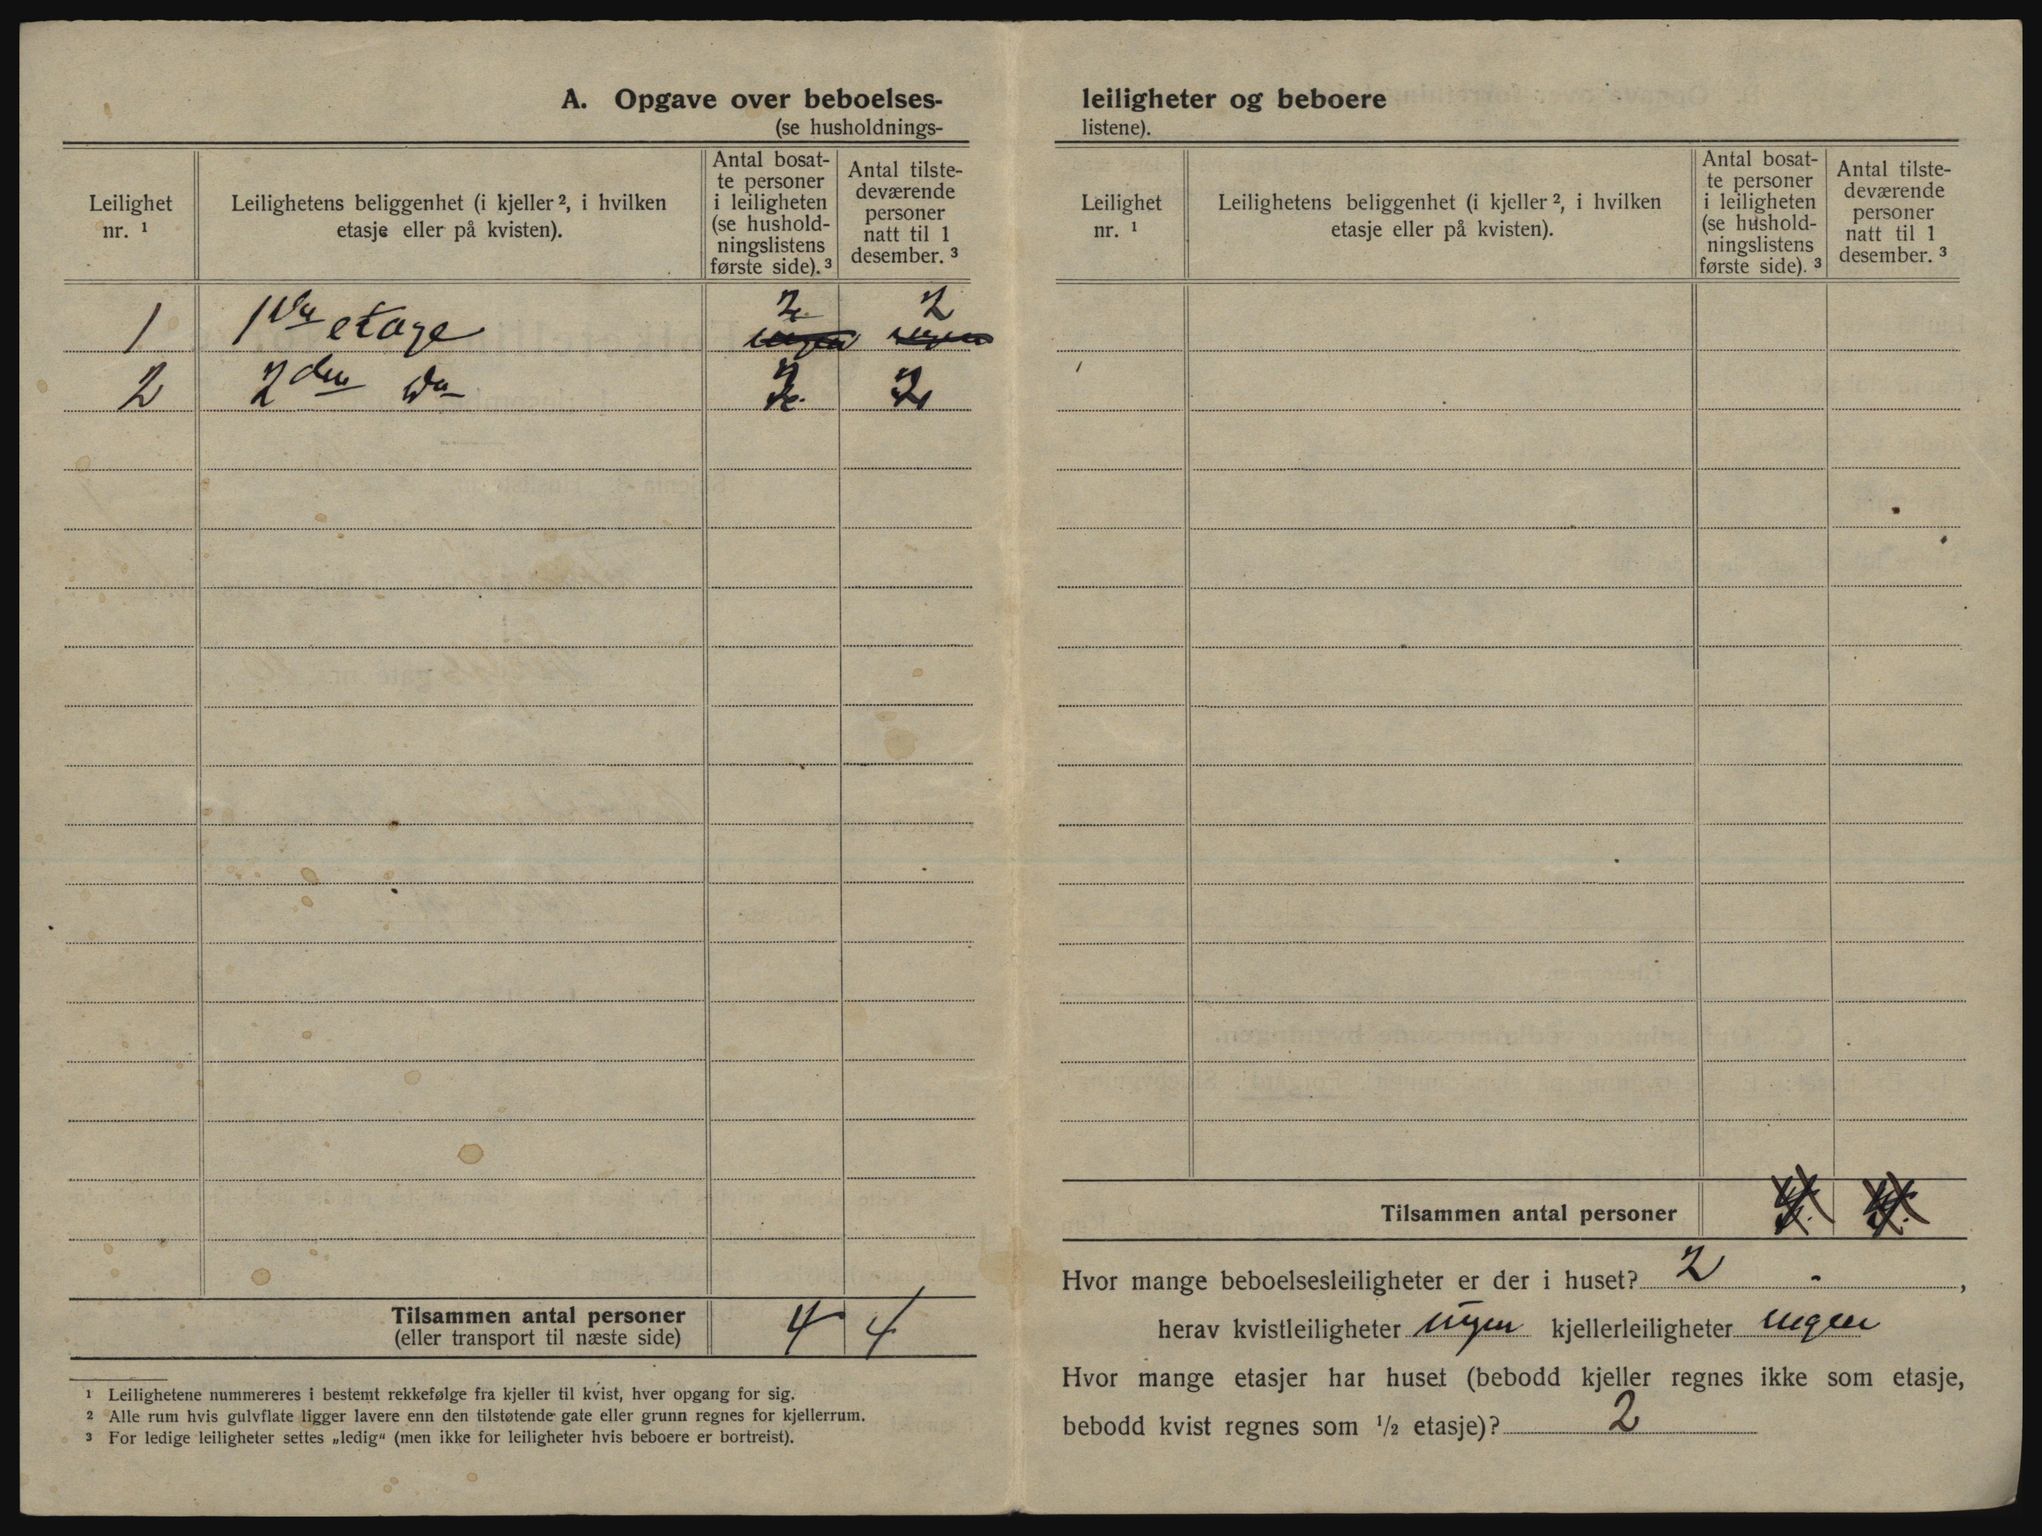 A. Opgave over beboelses-
(se husholdnings-
Leilighet
nr. ¹
Leilighetens beliggenhet (i kjeller ², i hvilken
etasje eller på kvisten).
Antal bosat-
te personer
i leiligheten
(se hushold-
ningslistens
første side). ³
Antal tilste-
deværende
personer
natt til 1
desember. ³
1 1ste etage 2 2
ingen ingen
2 2den do 2 2
Tilsammen antal personer
(eller transport til næste side) 4 4
¹ Leilighetene nummereres i bestemt rekkefølge fra kjeller til kvist, hver opgang for sig.
² Alle rum hvis gulvflate ligger lavere enn den tilstøtende gate eller grunn regnes for kjellerrum.
³ For ledige leiligheter settes „ledig“ (men ikke for leiligheter hvis beboere er bortreist).
leiligheter og beboere
listene).
Leilighet
nr. ¹
Leilighetens beliggenhet (i kjeller ², i hvilken
etasje eller på kvisten).
Antal bosat-
te personer
i leiligheten
(se hushold-
ningslistens
første side). ³
Antal tilste-
deværende
personer
natt til 1
desember. ³
Tilsammen antal personer
Hvor mange beboelsesleiligheter er der i huset? 2 ,
herav kvistleiligheter ingen kjellerleiligheter ingen
Hvor mange etasjer har huset (bebodd kjeller regnes ikke som etasje,
bebodd kvist regnes som ½ etasje)? 2